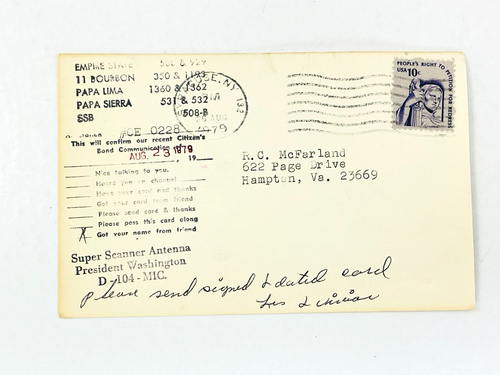 EMPIRE STATE
11 BOURBON 350 & 1193
PAPA LIMA 1360 & 1362
PAPA SIERRA 531 & 532
SSB 508-B
N.Y.
133
AUG
1979
PEOPLE'S RIGHT TO PETITION FOR REDRESS
USA 10c
OE 0228
This will confirm our recent Citizen's
Band Communication
AUG. 23 1979, 19
Nice talking to you.
Heard you on channel
Have your card and thanks
Got your card from friend
Please send card & thanks
Please pass this card along
X Got your name from friend
R.C. McFarland
622 Page Drive
Hampton, Va. 23669
Super Scanner Antenna
President Washington
D-104-MIC.
Please send signed & dated card